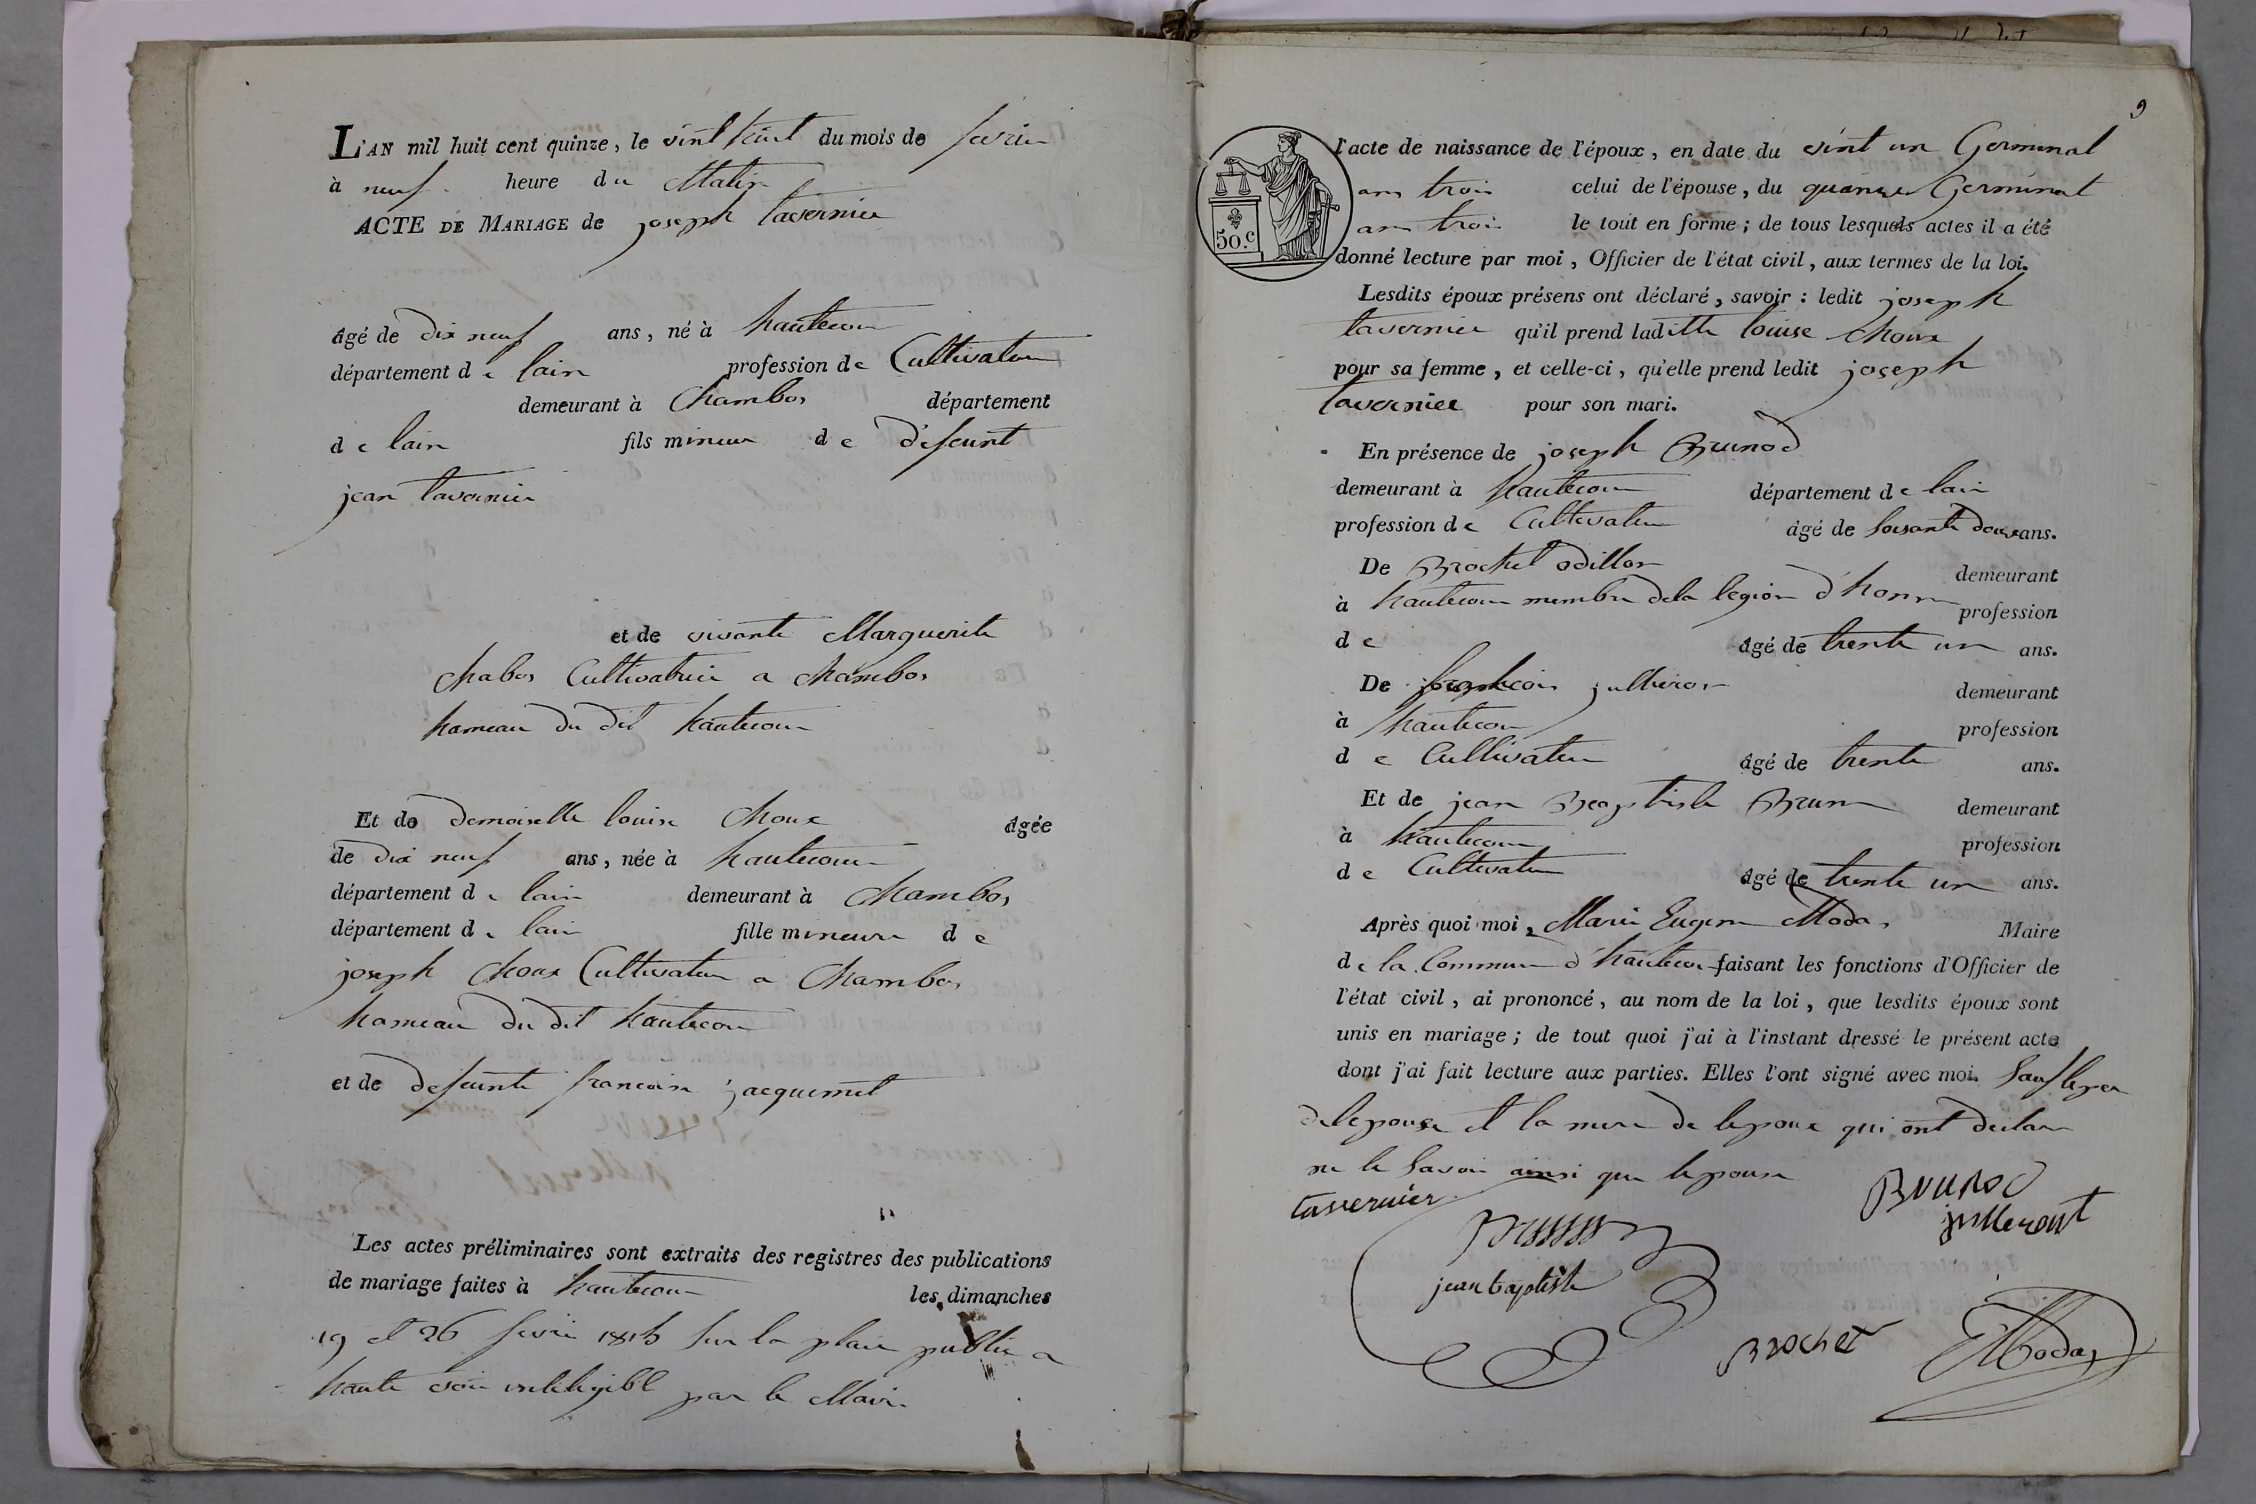 L'AN mil huit cent quinze, le vint huit du mois de fevrier
à neuf heure du Matin
ACTE DE MARIAGE de joseph tavernier
âgé de dix neuf ans, né à hautecour
département de lain profession de Cultivateur
demeurant à Chambos département
de lain fils mineur de défeunt
jean tavernier
et de vivante Marguerite
Chabos Cultivatrice a Chambos
hameau du dit hautecour
Et de demoiselle louise Choux âgée
de dix neuf ans, née à hautecour
département de lain demeurant à Chambos
département de lain fille mineure de
joseph Choux Cultivateur a Chambos
hameau du dit hautecour
et de defeunte francoise jacquemet
Les actes préliminaires sont extraits des registres des publications
de mariage faites à hautecour les dimanches
19 et 26 fevrier 1815 sur la place public a
haute voie inteligible par le Maire
9
l'acte de naissance de l'époux, en date du vint un Germinal
an trois celui de l'épouse, du quainze Germinal
an trois le tout en forme; de tous lesquels actes il a été
50.c
donné lecture par moi, Officier de l'état civil, aux termes de la loi.
Lesdits époux présens ont déclaré, savoir: ledit joseph
tavernier qu'il prend laditte louise Choux
pour sa femme, et celle-ci, qu'elle prend ledit joseph
tavernier pour son mari.
En présence de joseph Brunod
demeurant à hautecour département de lain
profession de Cultivateur âgé de soisante douze ans.
De Brochet odillon demeurant
à hautecour membre de la legion d'honneur profession
de âgé de trente un ans.
De francois julliron demeurant
à hautecour profession
de Cultivateur âgé de trente ans.
Et de jean Baptiste Brun demeurant
à hautecour profession
de Cultivateur âgé de trente un ans.
Après quoi moi, Marie Eugene Modas Maire
de la Commune d'hautecour faisant les fonctions d'Officier de
l'état civil, ai prononcé, au nom de la loi, que lesdits époux sont
unis en mariage; de tout quoi j'ai à l'instant dressé le présent acte
dont j'ai fait lecture aux parties. Elles l'ont signé avec moi. Sauf le per
de lepouse et la mere de lepoux qui ont declare
ne le savoir ainsi que lepouse
tavernier Brunod
jean baptiste
Brochet Modas